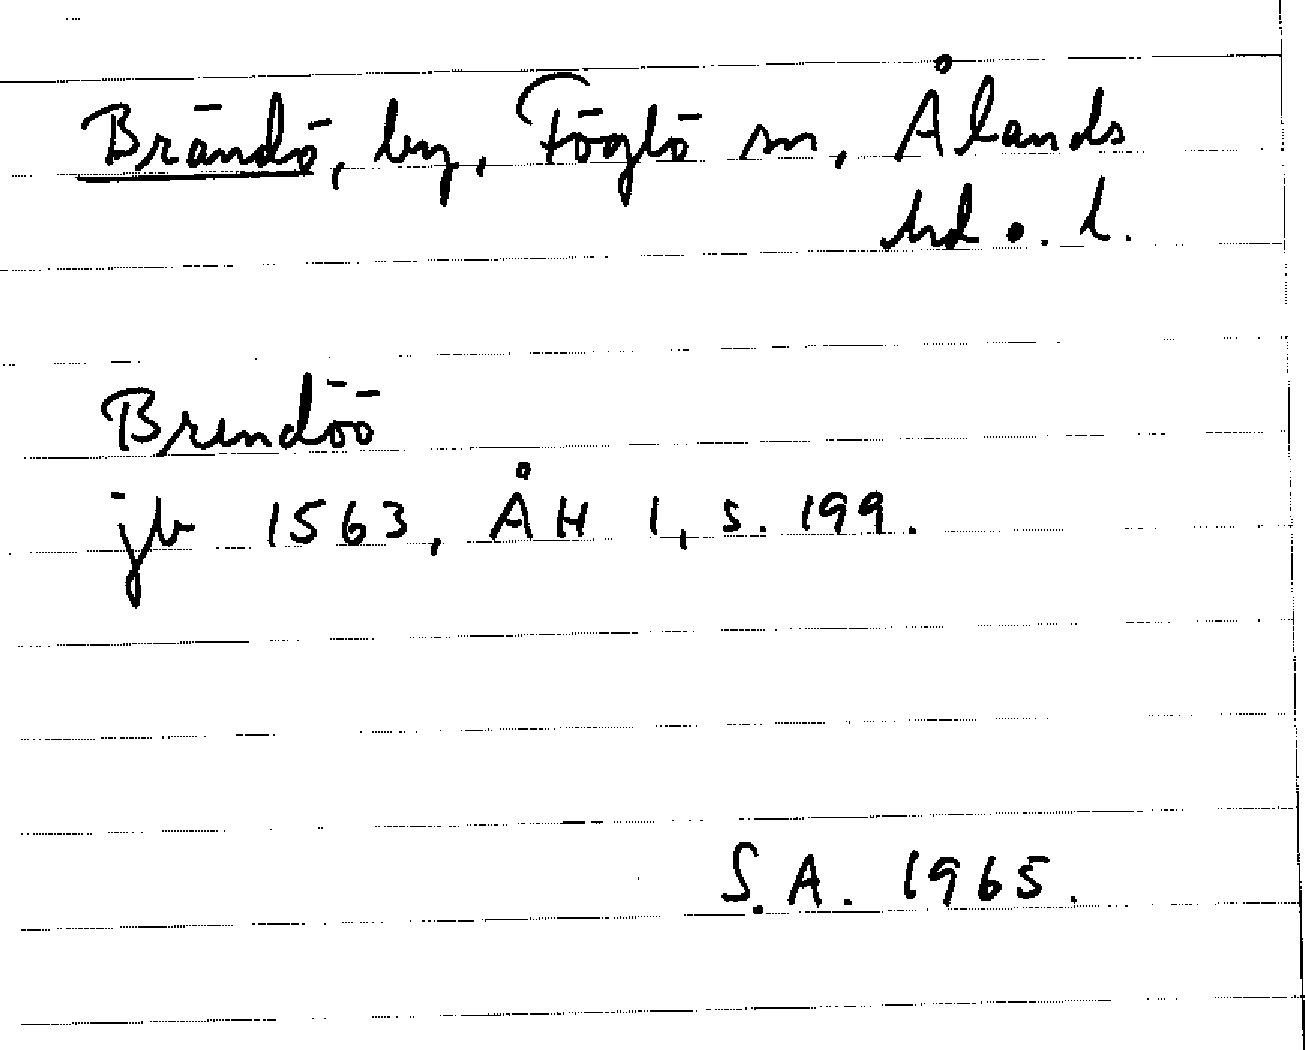 Brändö, by, Föglö sn, Ålands
hd o. l.
Brendöö
jb 1563, ÅH 1, s. 199.
S.A. 1965.